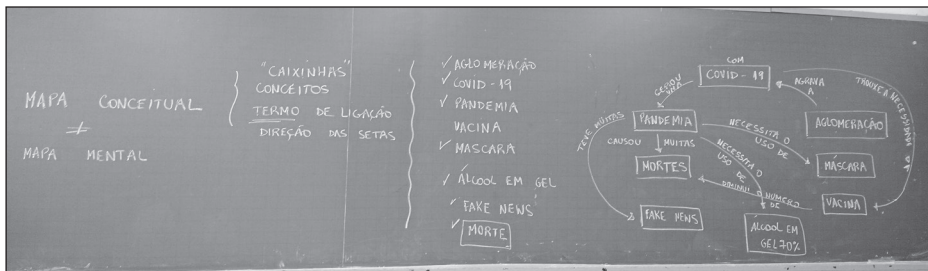 MAPA CONCEITUAL
≠
MAPA MENTAL
"CAIXINHAS"
CONCEITOS
TERMO DE LIGAÇÃO
DIREÇÃO DAS SETAS
✓ AGLOMERAÇÃO
✓ COVID-19
✓ PANDEMIA
VACINA
✓ MASCARA
✓ ÁLCOOL EM GEL
✓ FAKE NEWS
✓ MORTE
COM
COVID-19
GEROU
UMA
AGRAVA
A
TROUXE A NECESSIDADE DA
AGLOMERAÇÃO
PANDEMIA
TEVE MUITAS
CAUSOU MUITAS
NECESSITA O
USO DE
MÁSCARA
MORTES
NECESSITA O
USO DE
DIMINUI O NÚMERO
DE
VACINA
FAKE NEWS
ÁLCOOL EM
GEL 70%